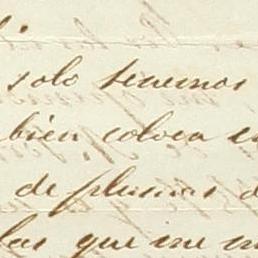 solo tenemos
bien coloca
de plumas
las que me